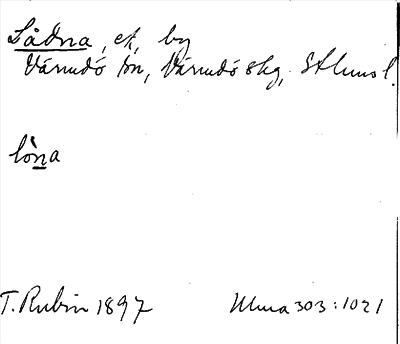 Lådna, ek, by
Värmdö sn, Värmdö skg, Sthlms l.
lòna
T. Rubin 1897 Ulma 303:1021